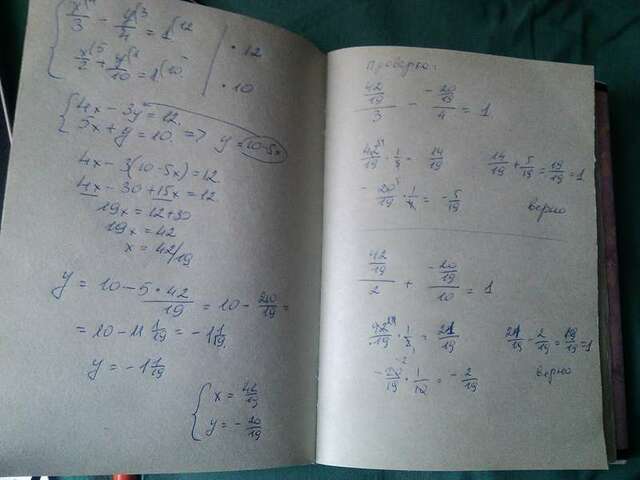 x/3 - y/4 = 1 | · 12
x/2 + y/10 = 1 | · 10
{ 4x - 3y = 12
{ 5x + y = 10 => y = 10-5x
4x - 3(10-5x) = 12
4x - 30 + 15x = 12
19x = 12+30
19x = 42
x = 42/19
= 10 - 11 1/19 = -1 1/19
y = -1 1/19
{ x = 42/19
{ y = - 20/19
Проверка:
42/19 / 3 - -20/19 / 4 = 1
42/19 · 1/3 = 14/19
14/19 + 5/19 = 19/19 = 1
- 20/19 · 1/4 = - 5/19
верно
42/19 / 2 + -20/19 / 10 = 1
42/19 · 1/2 = 21/19
21/19 - 2/19 = 19/19 = 1
- 20/19 · 1/10 = - 2/19
верно